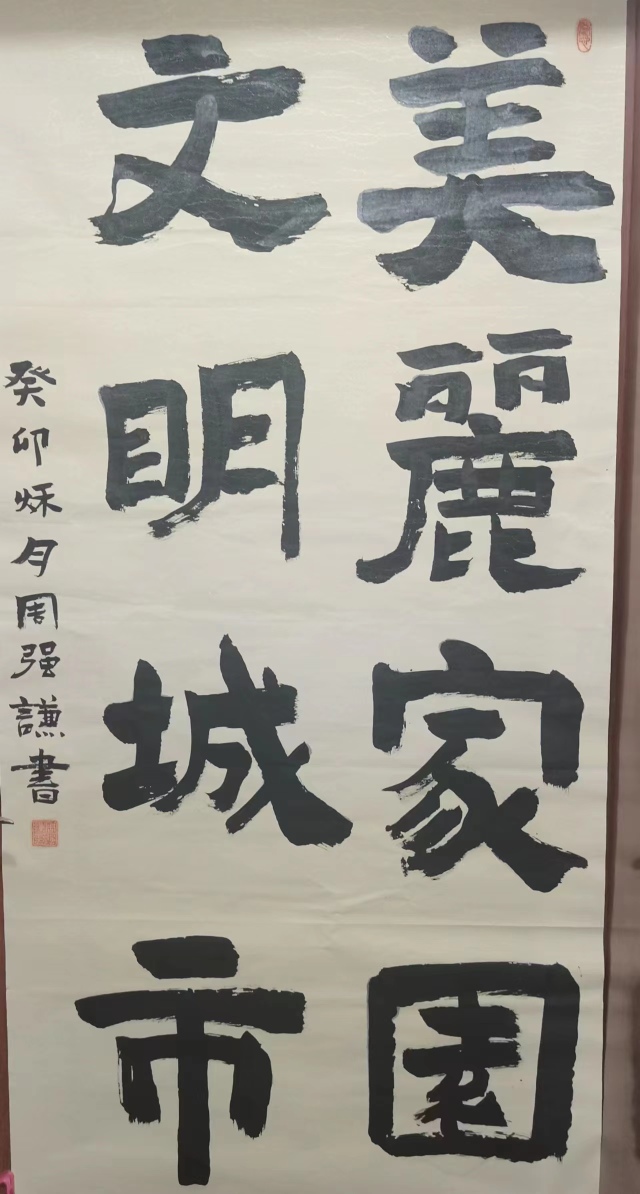 美麗家園
文明城市
癸卯秌月周强謙書